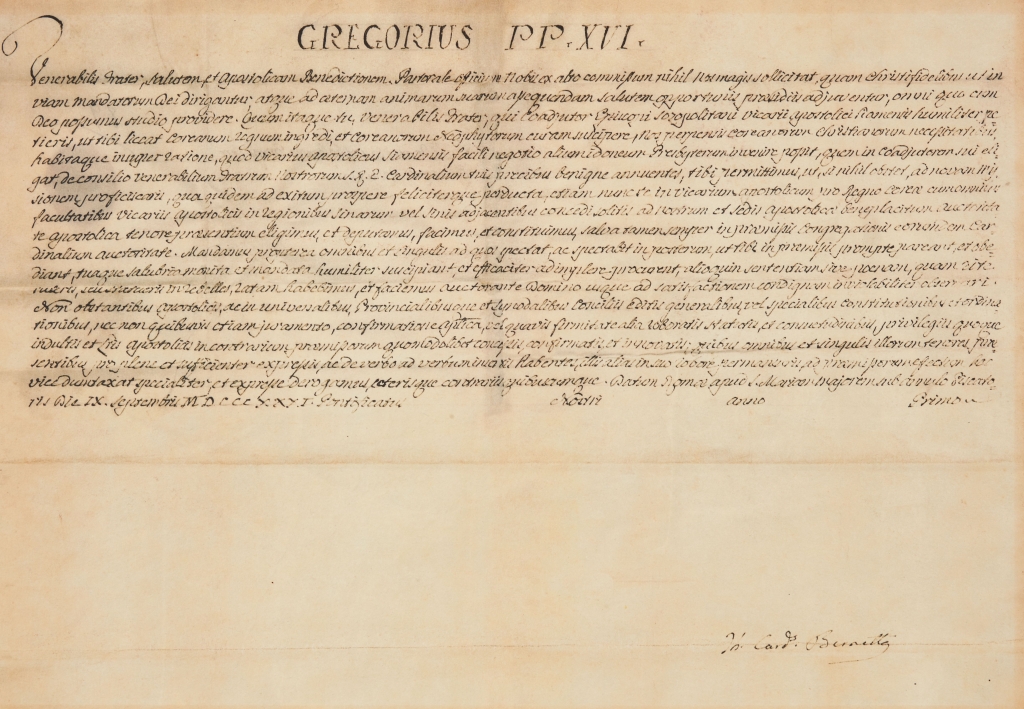 GREGORIUS PP. XVI.
Venerabilis Frater, Salutem, et Apostolicam Benedictionem. Pastorale officium Nobis ex alto commissum nihil Nos magis sollicitat, quam Christifideles ut in
viam mandatorum Dei dirigantur, atque ad eternam animarum suarum assequendam salutem opportunis præsidiis adjuventur, omni quo cum
Deo possumus studio providere. Cum itaque tu, Venerabilis Frater, qui Coadjutor Episcopi Sozopolitani Vicarii Apostolici Siamensis humiliter pe-
tieris, ut tibi liceat Coreanum Regnum ingredi, et Coreanorum Neophytorum curam suscipere, Nos perpensis Coreanorum Christianorum necessitatibus,
habitaque insuper ratione, quod Vicarius Apostolicus Siamensis facili negotio alium idoneum Presbyterum invenire possit, quem in Coadjutorem sui eli-
gat, de consilio Venerabilium Fratrum Nostrorum S. R. E. Cardinalium tuis precibus benigne annuentes, tibi permittimus, ut, si nihil obstet, ad novam Mis-
sionem proficiscaris, qua quidem ad exitum prospere feliciterque perducta, etiam nunc te in Vicarium Apostolicum pro Regno Coreæ cum omnibus
facultatibus Vicariis Apostolicis in Regionibus Sinarum vel Sinis adjacentibus concedi solitis ad Nostrum et Sedis Apostolicæ beneplacitum auctorita-
te Apostolica tenore præsentium eligimus, et deputamus, facimus, et constituimus, salva tamen semper in præmissis Congregationis eorumdem Car-
dinalium auctoritate. Mandamus propterea omnibus et singulis ad quos spectat, ac spectabit in posterum, ut tibi in præmissis prompte pareant, et obe-
diant, tuaque salubria monita et mandata humiliter suscipiant, et efficaciter adimplere procurent, alioquin sententiam sive poenam, quam rite
tuleris, seu statueris in rebelles, ratam habebimus, et faciemus auctorante Domino usque ad satisfactionem condignam inviolabiliter observari.
Non obstantibus Apostolicis, ac in universalibus, Provincialibusque et Synodalibus Conciliis editis generalibus, vel specialibus constitutionibus, et ordina-
tionibus, nec non quibusvis etiam juramento, confirmatione Aptica, vel quavis firmitate alia roboratis statutis, et consuetudinibus, privilegiis quoque
indultis et Lris Apostolicis in contrarium præmissorum quomodolibet concessis, confirmatis, et innovatis. Quibus omnibus et singulis illorum tenores præ-
sentibus, pro plene et sufficienter expressis, ac de verbo ad verbum insertis habentes, illis alias in suo robore permansuris, ad præmissorum effectum hac
vice dumtaxat specialiter, et expresse derogamus, ceterisque contrariis quibuscumque. Datum Romæ apud S. Mariam Majorem sub Annulo Piscato-
ris Die IX. Septembris MDCCCXXXI. Pontificatus Nostri anno Primo
Th. Card. Bernetti